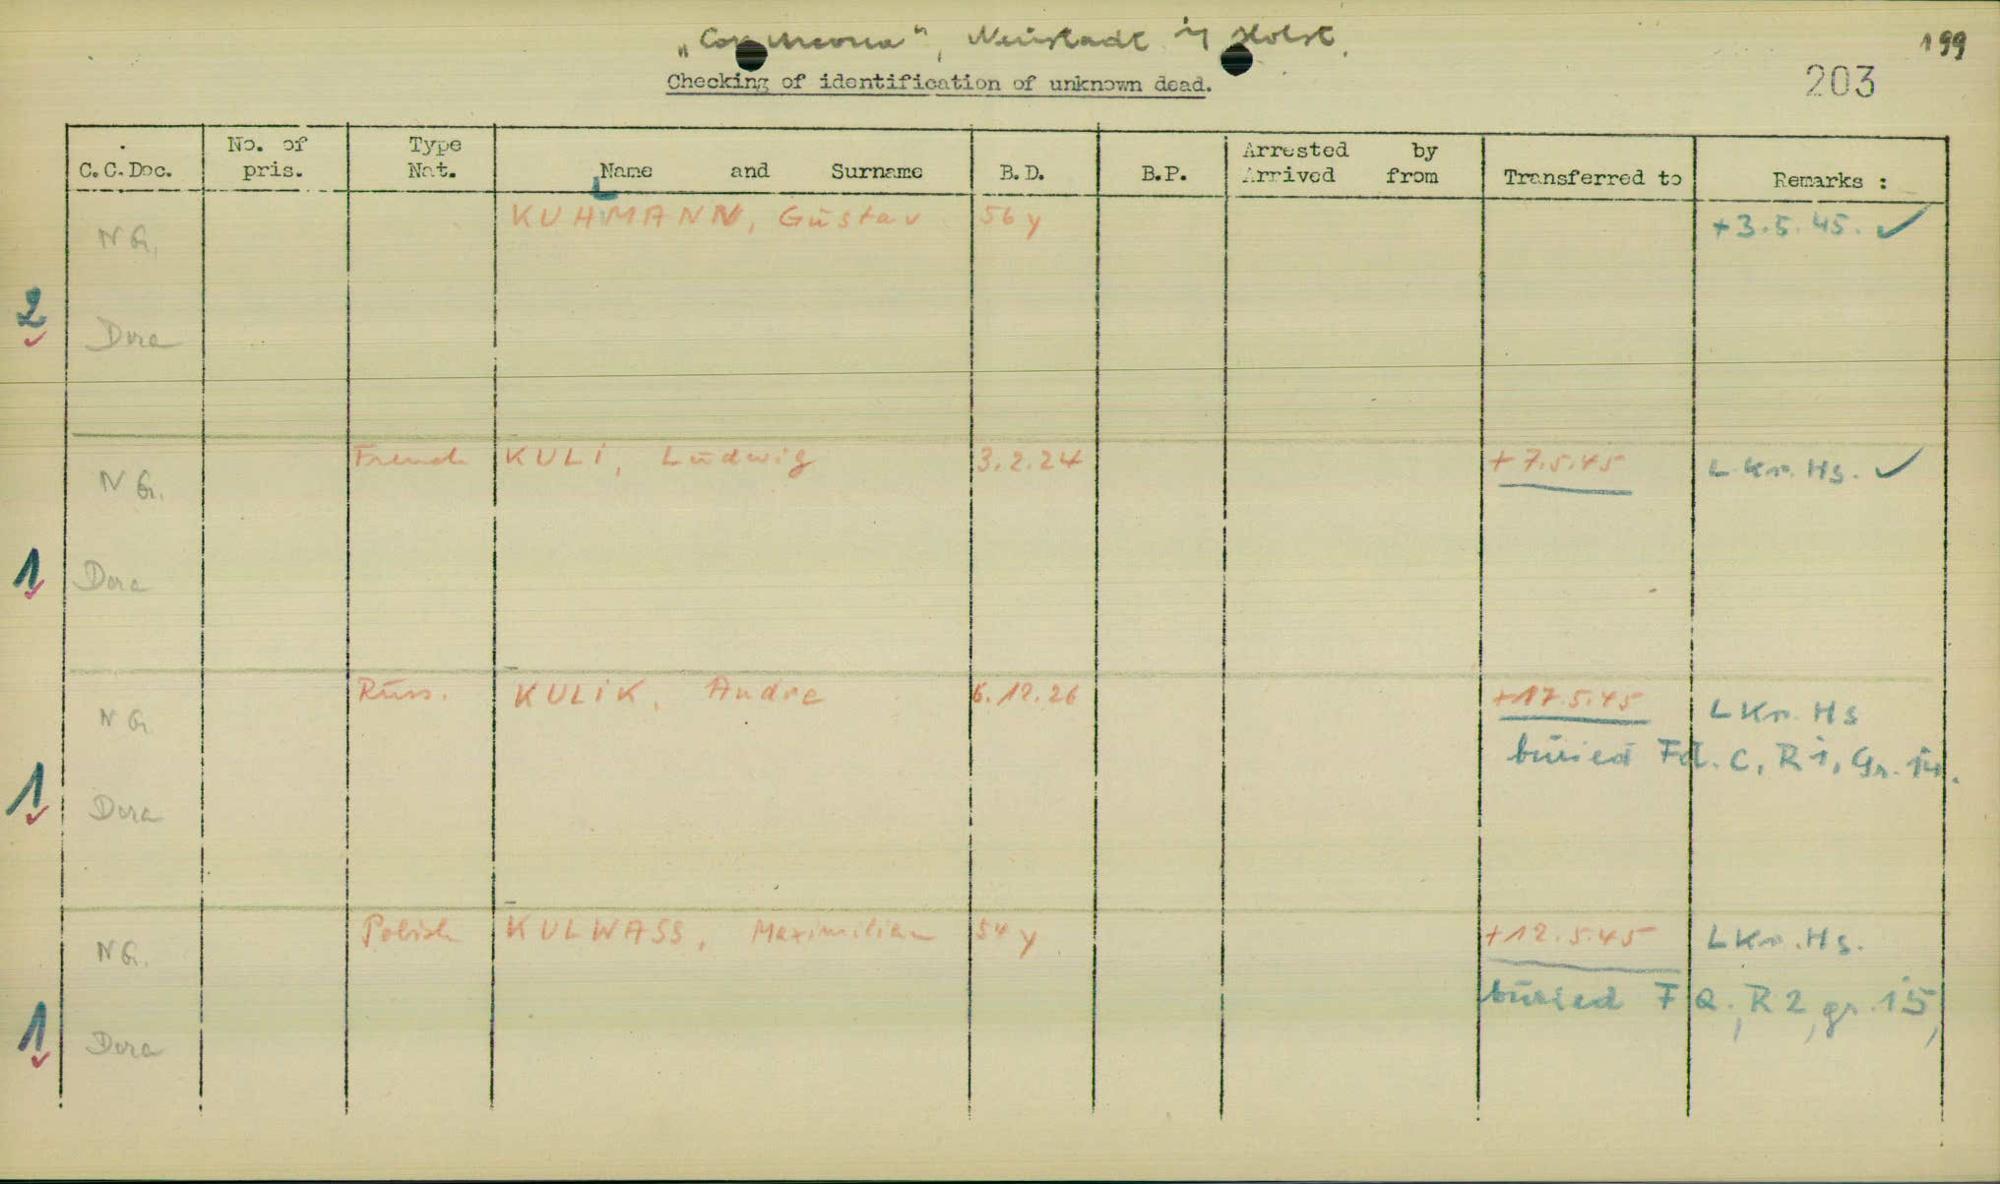 „Cap Arcona", Neustadt i/ Holst.
199
Checking of identification of unknown dead.
203
C.C.Doc. No. of pris. Type Nat. Name and Surname B.D. B.P. Arrested by Arrived from Transferred to Remarks :
L
NG. KUHMANN, Gustav 56 y +3.5.45. ✓
2 ✓ Dora
NG. French KULI, Ludwig 3.2.24 +7.5.45 L Kr. Hs. ✓
1 ✓ Dora
NG Russ. KULIK, Andre 6.12.26 +17.5.45 L Kr. Hs
buried Fd. C, R 1, Gr. 14.
1 ✓ Dora
NG. Polish KULWASS, Maximilian 54 y +12.5.45 L Kr. Hs.
buried F Q., R 2, gr. 15,
1 ✓ Dora